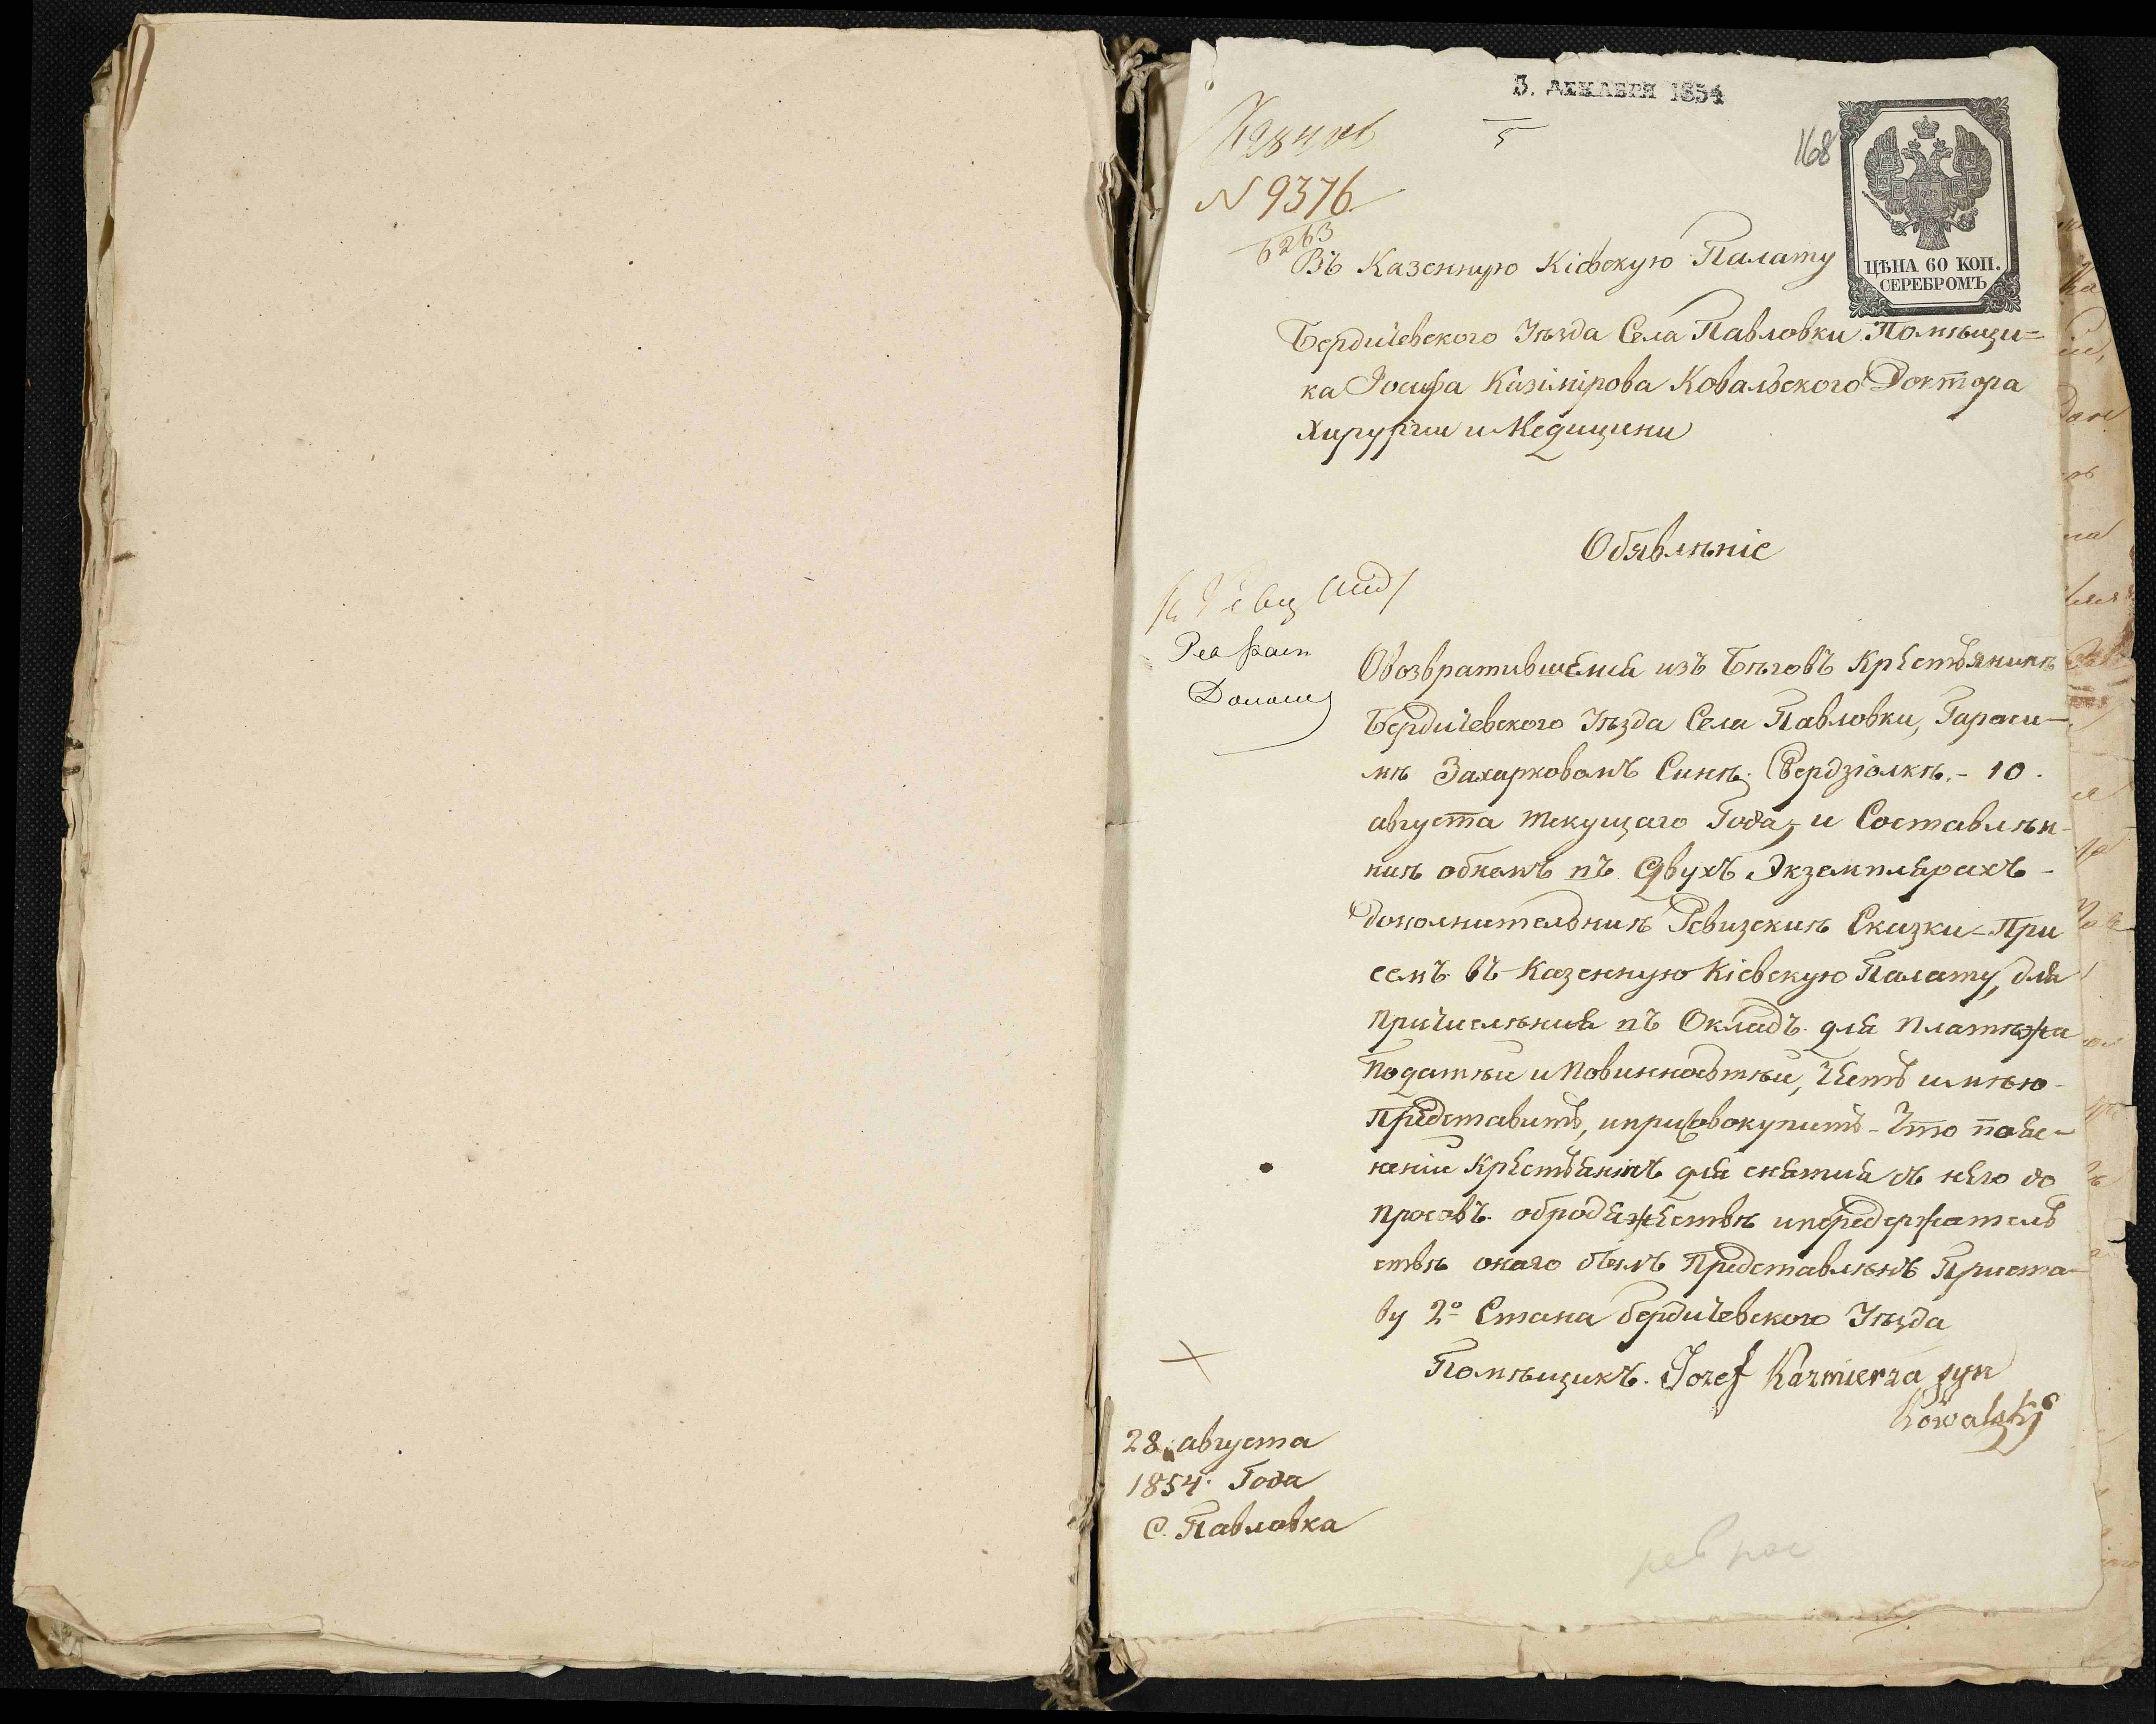 3. ДЕКАБРЯ 1854
5
168
N 9376
6263
ЦѢНА 60 КОП.
СЕРЕБРОМЪ
Въ Казенную Кіевскую Палату
Бердичевского Уѣзда Села Павловки Помѣщи=
ка Іосифа Казімірова Ковальского Доктора
Хирургіи и Медицини
Обявлѣніе
Овозвратившемся изъ Бѣговъ Крестьянинѣ
Бердичевского Уѣзда Села Павловки, Гараси-
мѣ Захарковомъ Синѣ Свердзіолкѣ. - 10.
августа текущаго Года, и Составлѣн-
ниѣ обнемъ въ Двухъ Экземплярахъ -
дополнительниѣ Ревизскиѣ Сказки - При
семъ въ Казенную Кіевскую Палату, для
причислѣния въ Окладъ для платѣжа
Податѣй и Повинностѣй, Честь имѣю -
Представить, иприсовокупить - Что пояс-
неніи Крестьянінъ для снятия съ него до
просовъ обродяжествѣ ипередержатель
ствѣ онаго былъ Представлѣнъ Приста-
ву 2º Стана бердичевского Уѣзда
Помѣщикъ. Jozef Kazmierza syn
Kowalski
28 августа
1854. Года
С. Павловка
рев рас